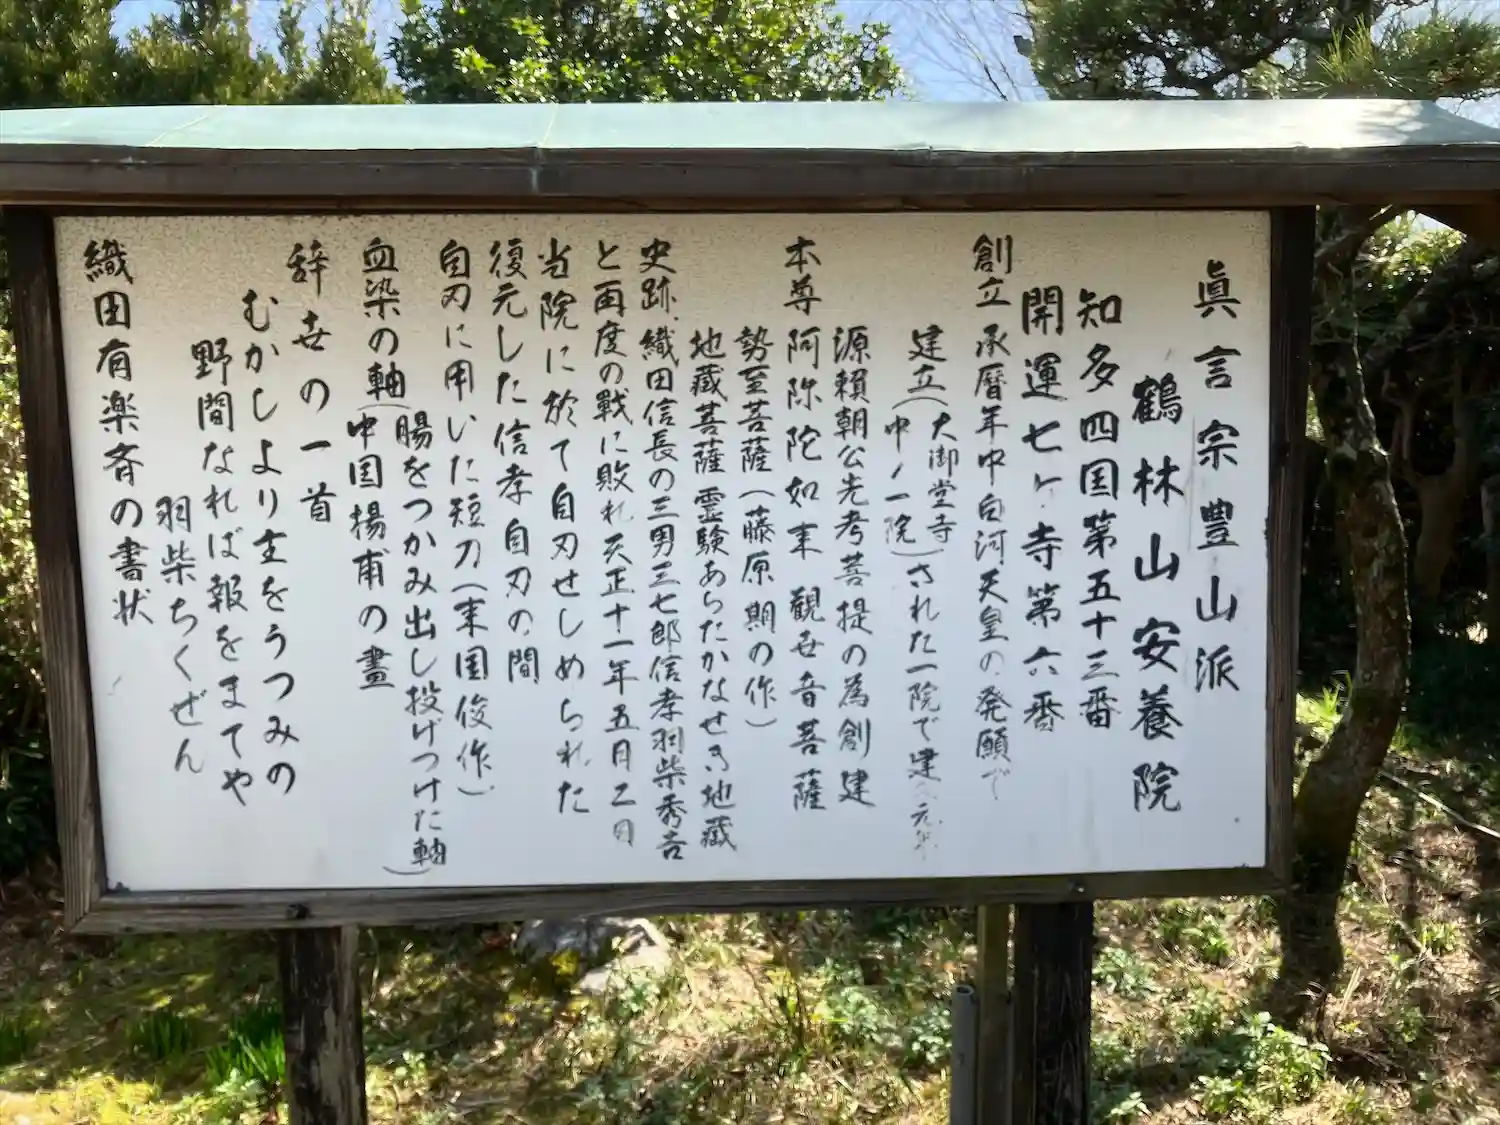 眞言宗豊山派
鶴林山安養院
知多四国第五十三番
開運七ヶ寺第六番
創立 承暦年中白河天皇の発願で
建立(大御堂寺
中ノ一院)された一院で建
源頼朝公先考菩提の為創建
本尊 阿弥陀如来 観世音菩薩
勢至菩薩(藤原期の作)
地蔵菩薩 霊験あらたかなせき地蔵
史跡、織田信長の三男三七郎信孝羽柴秀吉
と再度の戦に敗れ天正十一年五月二日
当院に於て自刃せしめられた
復元した信孝自刃の間
自刃に用いた短刀(来国俊作)
血染の軸(腸をつかみ出し投げつけた軸)
中国楊甫の畫
辞世の一首
むかしより主をうつみの
野間なれば報をまてや
羽柴ちくぜん
織田有楽斉の書状